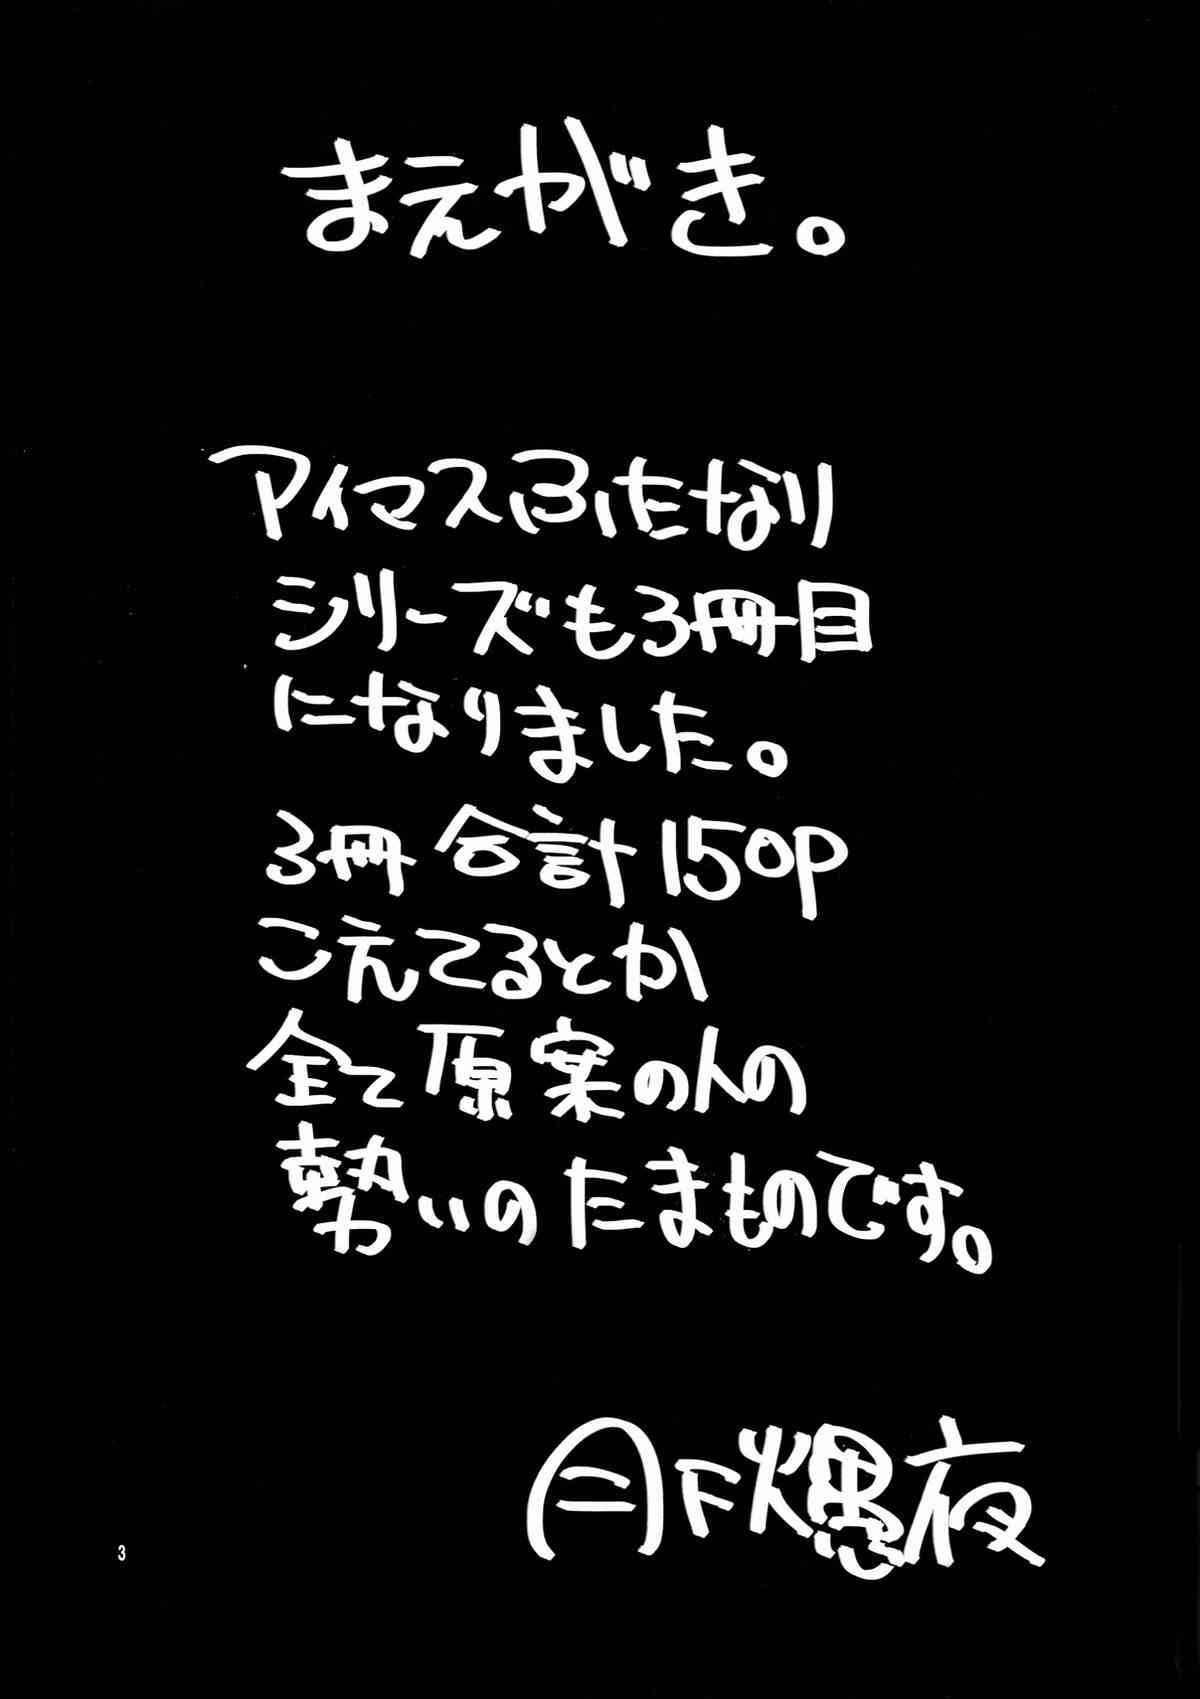 まえがき。
アイマスふたなり
シリーズも3冊目
になりました。
3冊 合計150P
こえてるとか
全て原案の人の
勢いのたまものです。
月下
夜
3